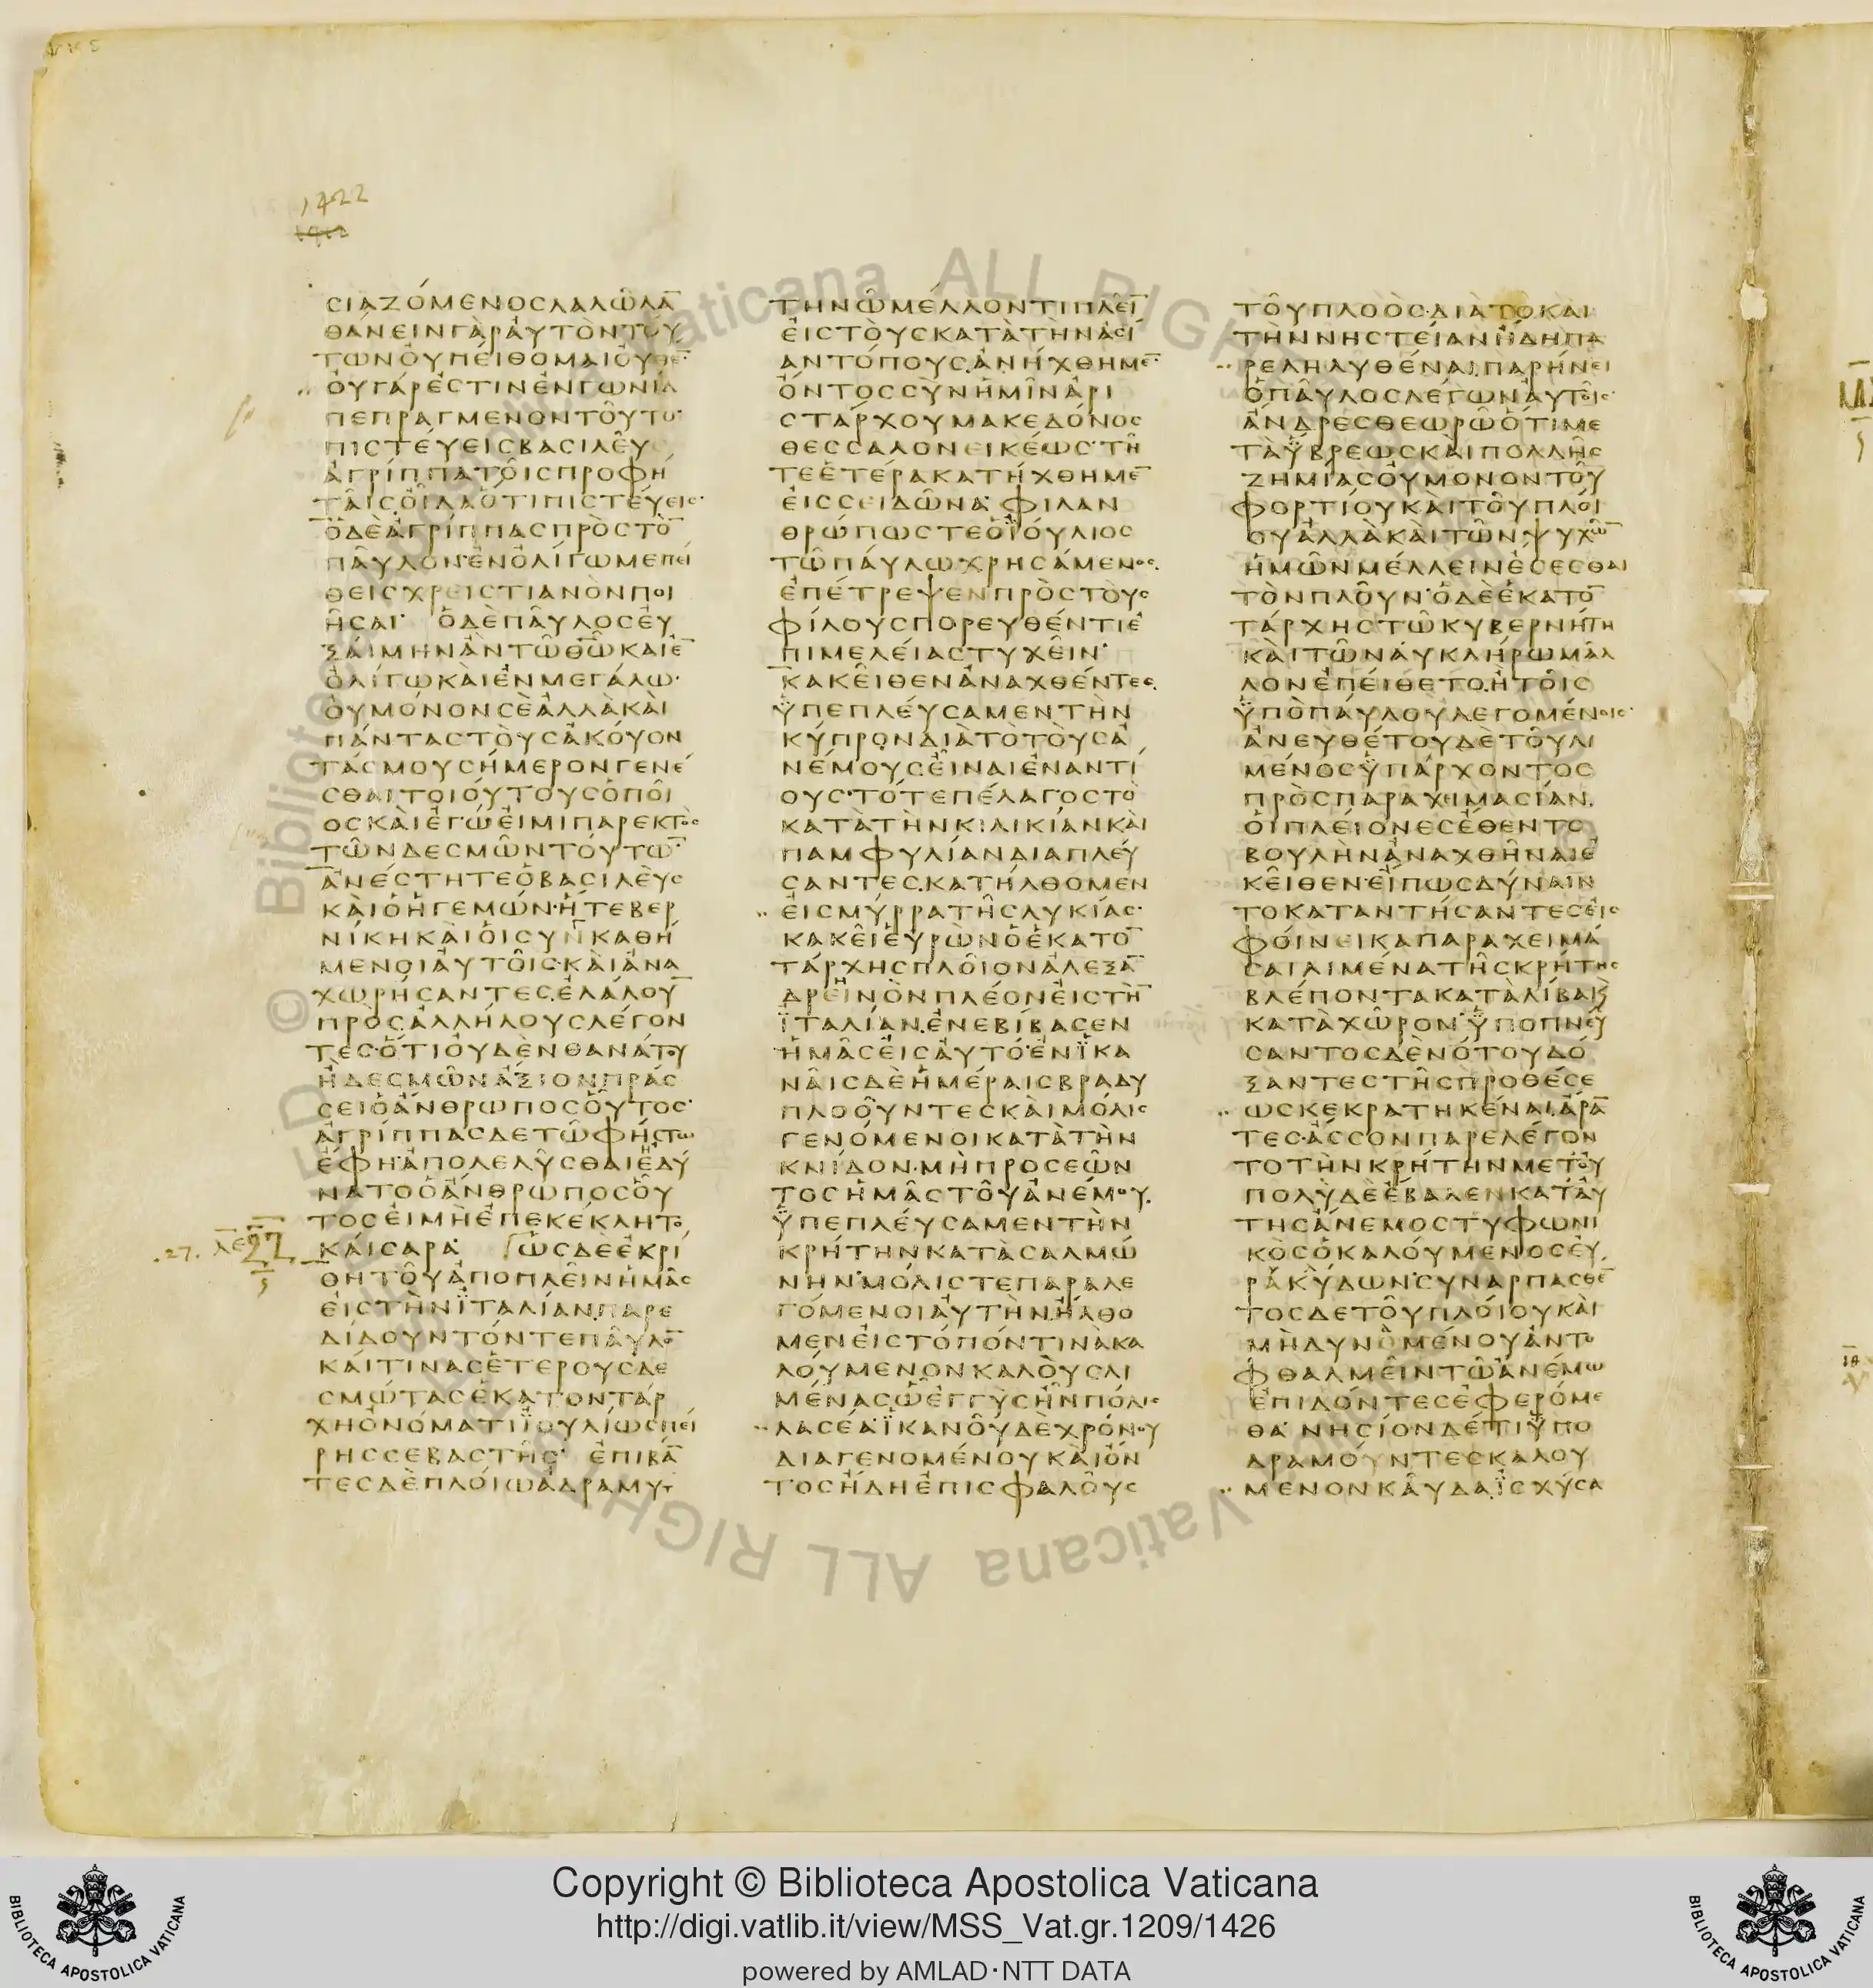 1422
ϹΙΑΖΌΜΕΝΟϹΛΑΛΩ͂ΛΑ̅
ΘΆΝΕΙΝΓᾺΡΑΥΤῸΝΤΟΎ
ΤΩΝΟΥΠΕΊΘΟΜΑΙΟΥΘΕ̅·
ΟΥΓΆΡΕϹΤΙΝΕΝΓΩΝΊΑ
ΠΕΠΡΑΓΜΕΝΟΝΤΟΥ͂ΤΟ·
ΠΙϹΤΕΎΕΙϹΒΑϹΙΛΕΥ͂
ἈΓΡΊΠΠΑΤΟΙ͂ϹΠΡΟΦΉ
ΤΑΙϹΟΙ͂ΔΑΌΤΙΠΙϹΤΕΎΕΙϹ·
ὉΔῈἈΓΡΊΠΠΑϹΠΡῸϹΤΟ̅
ΠΑΥ͂ΛΟΝ·ἘΝὈΛΊΓΩΜΕΠΕΙ
ΘΕΙϹΧΡΕΙϹΤΙΑΝῸΝΠΟΙ
Η͂ϹΑΙ· ὉΔῈΠΑΥ͂ΛΟϹΕΥ
ΞΑΊΜΗΝἊΝΤΩ͂Θ̅Ω̅ΚΑΙΕ̅
ὈΛΊΓΩΚΑῚἘΝΜΕΓΆΛΩ·
ΟΥΜΌΝΟΝϹῈἈΛΛᾺΚΑῚ
ΠΆΝΤΑϹΤΟῪϹἈΚΟΎΟΝ
ΤΆϹΜΟΥϹΉΜΕΡΟΝΓΕΝΈ
ϹΘΑΙΤΟΙΟΎΤΟΥϹὉΠΟΙ͂
ΟϹΚΑῚἘΓΏΕἸΜΙΠΑΡΕΚΤῸϹ
ΤΩ͂ΝΔΕϹΜΩ͂ΝΤΟΎΤΩ̅·
ἈΝΈϹΤΗΤΕὉΒΑϹΙΛΕΥϹ
ΚΑῚὉἩΓΕΜΏΝ·ἭΤΕΒΕΡ
ΝΊΚΗΚΑῚΟἹϹΥΝΚΑΘΉ
ΜΕΝΟΙΑΥΤΟΙ͂Ϲ·ΚΑῚἈΝΑ
ΧΩΡΉϹΑΝΤΕϹ.ἘΛΆΛΟΥ̅
ΠΡῸϹἈΛΛΉΛΟΥϹΛΈΓΟΝ
ΤΕϹ·ὍΤΙΟΥΔῈΝΘΑΝΆΤΟΥ
ἪΔΕϹΜΩ͂ΝἌΞΙΟΝΠΡΆϹ
ϹΕΙὉἌΝΘΡΩΠΟϹΟὟΤΟϹ·
ἈΓΡΊΠΠΑϹΔΕΤΩ͂ΦΉϹΤΩ
ἜΦΗ·ἈΠΟΛΕΛΎϹΘΑΙἘΔΎ
ΝΑΤΟὉἌΝΘΡΩΠΟϹΟΥ͂
ΤΟϹΕἸΜῊἘΠΕΚΈΚΛΗΤΟ
.27. ΚΑΊϹΑΡΑ· ὩϹΔῈἘΚΡΊ
ΘΗΤΟΥ͂ἈΠΟΠΛΕΙ͂ΝἩΜΑ͂Ϲ
ΕἸϹΤῊΝΪΤΑΛΊΑΝ.ΠΑΡΕ
ΔΊΔΟΥΝΤΌΝΤΕΠΑΥ͂ΛΟ̅
ΚΑΊΤΙΝΑϹἙΤΈΡΟΥϹΔΕ
ϹΜΏΤΑϹἙΚΑΤΟΝΤΆΡ
ΧΗὈΝΌΜΑΤΙΪΟΥΛΊΩϹΠΕΙ
ΡΗϹϹΕΒΑϹΤΗ͂Ϲ· ἘΠΙΒΆ̅
ΤΕϹΔῈΠΛΟΊΩἈΔΡΑΜΥΤ
ΤΗΝΩ͂ΜΈΛΛΟΝΤΙΠΛΕΙ͂̅
ΕἸϹΤΟῪϹΚΑΤᾺΤῊΝἈϹΊ
ΑΝΤΌΠΟΥϹ.ἈΝΉΧΘΗΜΕ̅·
ὌΝΤΟϹϹῪΝἩΜΙ͂ΝἈΡΙ
ϹΤΆΡΧΟΥΜΑΚΕΔΌΝΟϹ
ΘΕϹϹΑΛΟΝΕΙΚΈΩϹ·ΤΗ͂
ΤΕἙΤΈΡΑΚΑΤΉΧΘΗΜΕ̅
ΕἸϹϹΕΙΔΩ͂ΝΑ· ΦΙΛΑΝ
ΘΡΏΠΩϹΤΕὉΪΟΎΛΙΟϹ
ΤΩ͂ΠΑΎΛΩΧΡΗϹΆΜΕΝΟϹ.
ἘΠΈΤΡΕΨΕΝΠΡῸϹΤΟῪϹ
ΦΊΛΟΥϹΠΟΡΕΥΘΈΝΤΙἘ
ΠΙΜΕΛΕΊΑϹΤΥΧΕΙ͂Ν·
ΚΑΚΕΙ͂ΘΕΝἈΝΑΧΘΈΝΤΕϹ.
ΫΠΕΠΛΕΎϹΑΜΕΝΤῊΝ
ΚΎΠΡΟΝΔΙᾺΤῸΤΟῪϹἈ
ΝΈΜΟΥϹΕΙ͂ΝΑΙἘΝΑΝΤΊ
ΟΥϹ·ΤΌΤΕΠΈΛΑΓΟϹΤῸ
ΚΑΤᾺΤῊΝΚΙΛΙΚΊΑΝΚΑῚ
ΠΑΜΦΥΛΊΑΝΔΙΑΠΛΕΎ
ϹΑΝΤΕϹ.ΚΑΤΉΛΘΟΜΕΝ
ΕἸϹΜΎΡΡΑΤΗ͂ϹΛΥΚΊΑϹ·
ΚΑΚΕΙ͂ΕΥΡῺΝὉἙΚΑΤΟ̅
ΤΆΡΧΗϹΠΛΟΙ͂ΟΝἈΛΕΞΑ̅
ΔΡΕΙΝῸΝΠΛΈΟΝΕἸϹΤῊ̅
ΪΤΑΛΊΑΝ.ἘΝΕΒΊΒΑϹΕΝ
ἩΜΑ͂ϹΕἸϹΑΥΤΌ·ἘΝΪΚΑ
ΝΑΙ͂ϹΔῈἩΜΈΡΑΙϹΒΡΑΔΥ
ΠΛΟΟΥ͂ΝΤΕϹΚΑῚΜΌΛΙϹ
ΓΕΝΌΜΕΝΟΙΚΑΤᾺΤῊΝ
ΚΝΊΔΟΝ·ΜῊΠΡΟϹΕΩ͂Ν
ΤΟϹἩΜΑ͂ϹΤΟΥ͂ἈΝΈΜΟΥ.
ΫΠΕΠΛΕΎϹΑΜΕΝΤῊΝ
ΚΡΉΤΗΝΚΑΤᾺϹΑΛΜΏ
ΝΗΝ·ΜΌΛΙϹΤΕΠΑΡΑΛΕ
ΓΌΜΕΝΟΙΑΥΤῊΝ.ἨΛΘΟ
ΜΕΝΕἸϹΤΌΠΟΝΤΙΝᾺΚΑ
ΛΟΎΜΕΝΟΝΚΑΛΟῪϹΛΙ
ΜΈΝΑϹΩ͂ἘΓΓῪϹΗ͂ΝΠΌΛΙϹ
ΛΑϹΈΑ·ΪΚΑΝΟΥ͂ΔῈΧΡΌΝΟΥ
ΔΙΑΓΕΝΟΜΈΝΟΥΚΑῚὌΝ
ΤΟϹἬΔΗἘΠΙϹΦΑΛΟΥ͂Ϲ
ΤΟΥ͂ΠΛΟῸϹ·ΔΙᾺΤῸΚΑῚ
ΤῊΝΝΗϹΤΕΊΑΝἬΔΗΠΑ
ΡΕΛΗΛΥΘΈΝΑΙ.ΠΑΡΉΝΕΙ
ὉΠΑΥ͂ΛΟϹΛΈΓΩΝΑΥΤΟΙ͂Ϲ·
ἌΝΔΡΕϹΘΕΩΡΩ͂ὍΤΙΜΕ
ΤᾺΫΒΡΕΩϹΚΑῚΠΟΛΛΗ͂Ϲ
ΖΗΜΊΑϹΟΥΜΟΝΟΝΤΟΥ͂
ΦΟΡΤΊΟΥΚΑῚΤΟΥ͂ΠΛΟΊ
ΟΥἈΛΛᾺΚΑῚΤΩ͂ΝΨΥΧΩ͂̅
ἩΜΩ͂ΝΜΈΛΛΕΙΝἜϹΕϹΘΑΙ
ΤῸΝΠΛΟΥ͂Ν·ὉΔῈἙΚΑΤΟ̅
ΤΆΡΧΗϹΤΩ͂ΚΥΒΕΡΝΉΤΗ
ΚΑῚΤΩ͂ΝΑΥΚΛΉΡΩΜΑ͂Λ
ΛΟΝἘΠΕΊΘΕΤΟ.ἪΤΟΙ͂Ϲ
ΫΠῸΠΑΎΛΟΥΛΕΓΟΜΈΝΟΙϹ·
ἈΝΕΥΘΈΤΟΥΔῈΤΟΥ͂ΛΙ
ΜΈΝΟϹΫΠΆΡΧΟΝΤΟϹ
ΠΡῸϹΠΑΡΑΧΙΜΑϹΊΑΝ.
ΟἹΠΛΕΊΟΝΕϹἜΘΕΝΤΟ
ΒΟΥΛῊΝἈΝΑΧΘΗ͂ΝΑΙἘ
ΚΕΙ͂ΘΕΝ·ΕἼΠΩϹΔΎΝΑΙΝ
ΤΟΚΑΤΑΝΤΉϹΑΝΤΕϹΕἸϹ
ΦΟΊΝΕΙΚΑΠΑΡΑΧΕΙΜΆ
ϹΑΙΛΙΜΈΝΑΤΗ͂ϹΚΡΉΤΗϹ
ΒΛΈΠΟΝΤΑΚΑΤᾺΛΊΒΑΚϚ
ΚΑΤᾺΧΩ͂ΡΟΝ·ΫΠΟΠΝΕΎ
ϹΑΝΤΟϹΔῈΝΌΤΟΥΔΌ
ΞΑΝΤΕϹΤΗ͂ϹΠΡΟΘΈϹΕ
ΩϹΚΕΚΡΑΤΗΚΈΝΑΙ.ἌΡΑ̅
ΤΕϹ·ἈϹϹΟΝΠΑΡΕΛΈΓΟΝ
ΤΟΤῊΝΚΡΉΤΗΝΜΕΤΟΥ
ΠΟΛῪΔῈἜΒΑΛΕΝΚΑΤΑΥ
ΤΗϹἌΝΕΜΟϹΤΥΦΩΝΙ
ΚῸϹὉΚΑΛΟΎΜΕΝΟϹΕΥ
ΡΑΚΎΔΩΝ·ϹΥΝΑΡΠΑϹΘΕ̅
ΤΟϹΔΕΤΟΥ͂ΠΛΟΊΟΥΚΑῚ
ΜῊΔΥΝΟΜΈΝΟΥἈΝΤΟ
ΦΘΑΛΜΕΙ͂ΝΤΩ͂ἈΝΈΜΩ
ἘΠΙΔΌΝΤΕϹἘΦΕΡΌΜΕ
ΘΑ· ΝΗϹΊΟΝΔΈΤΙΫΠΟ
ΔΡΑΜΌΥΝΤΕϹΚΑΛΟΥ
ΜΕΝΟΝΚΑΥ͂ΔΑ.ΪϹΧΎϹΑ
Copyright © Biblioteca Apostolica Vaticana
http://digi.vatlib.it/view/MSS_Vat.gr.1209/1426
powered by AMLAD·NTT DATA
BIBLIOTECA APOSTOLICA VATICANA
BIBLIOTECA APOSTOLICA VATICANA